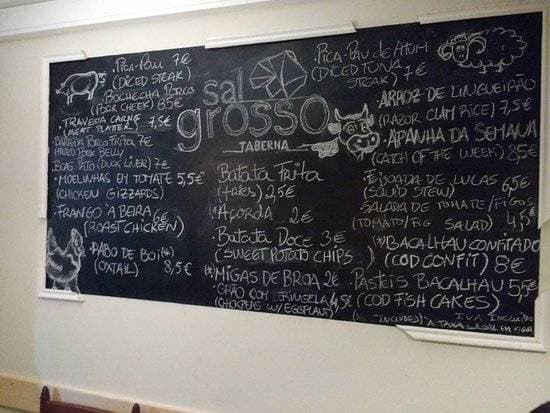 ·PICA-PAU 7€
(DICED STEAK)
·BOCHECHA PORCO
(PORK CHEEK) 8,5€
·TRAVESSA CARNE
(MEAT PLATTER) 7,5€
·BARRIGA PORCO FRITA 7€
(FRIED PORK BELLY)
PATO (DUCK LIVER) 7€
·MOELINHAS EM TOMATE 5,5€
(CHICKEN GIZZARDS)
·FRANGO À BEIRA 6€
(ROAST CHICKEN)
·RABO DE BOI (*)
(OXTAIL) 8,5€
sal
grosso
TABERNA
BATATA FRITA
(FRIES) 2,5€
(*)AÇORDA 2€
BATATA DOCE 3€
(SWEET POTATO CHIPS)
(*)MIGAS DE BROA 2€
·GRÃO COM BERINGELA 4,5€
(CHICKPEAS W/ EGGPLANT)
·PICA-PAU DE ATUM
(DICED TUNA
STEAK) 7€
·ARROZ DE LINGUEIRÃO
(RAZOR CLAM RICE) 7,5€
·APANHA DA SEMANA
(CATCH OF THE WEEK) 8,5€
·FEIJOADA DE LULAS 6,5€
(SQUID STEW)
·SALADA DE TOMATE/FIGOS
(TOMATO/FIG SALAD) 4,5€
(*)BACALHAU CONFITADO
(COD CONFIT) 8€
·PASTEIS BACALHAU 5,5€
(COD FISH CAKES)
INCLUDED) IVA INCLUIDO
À TAXA LEGAL EM VIGOR